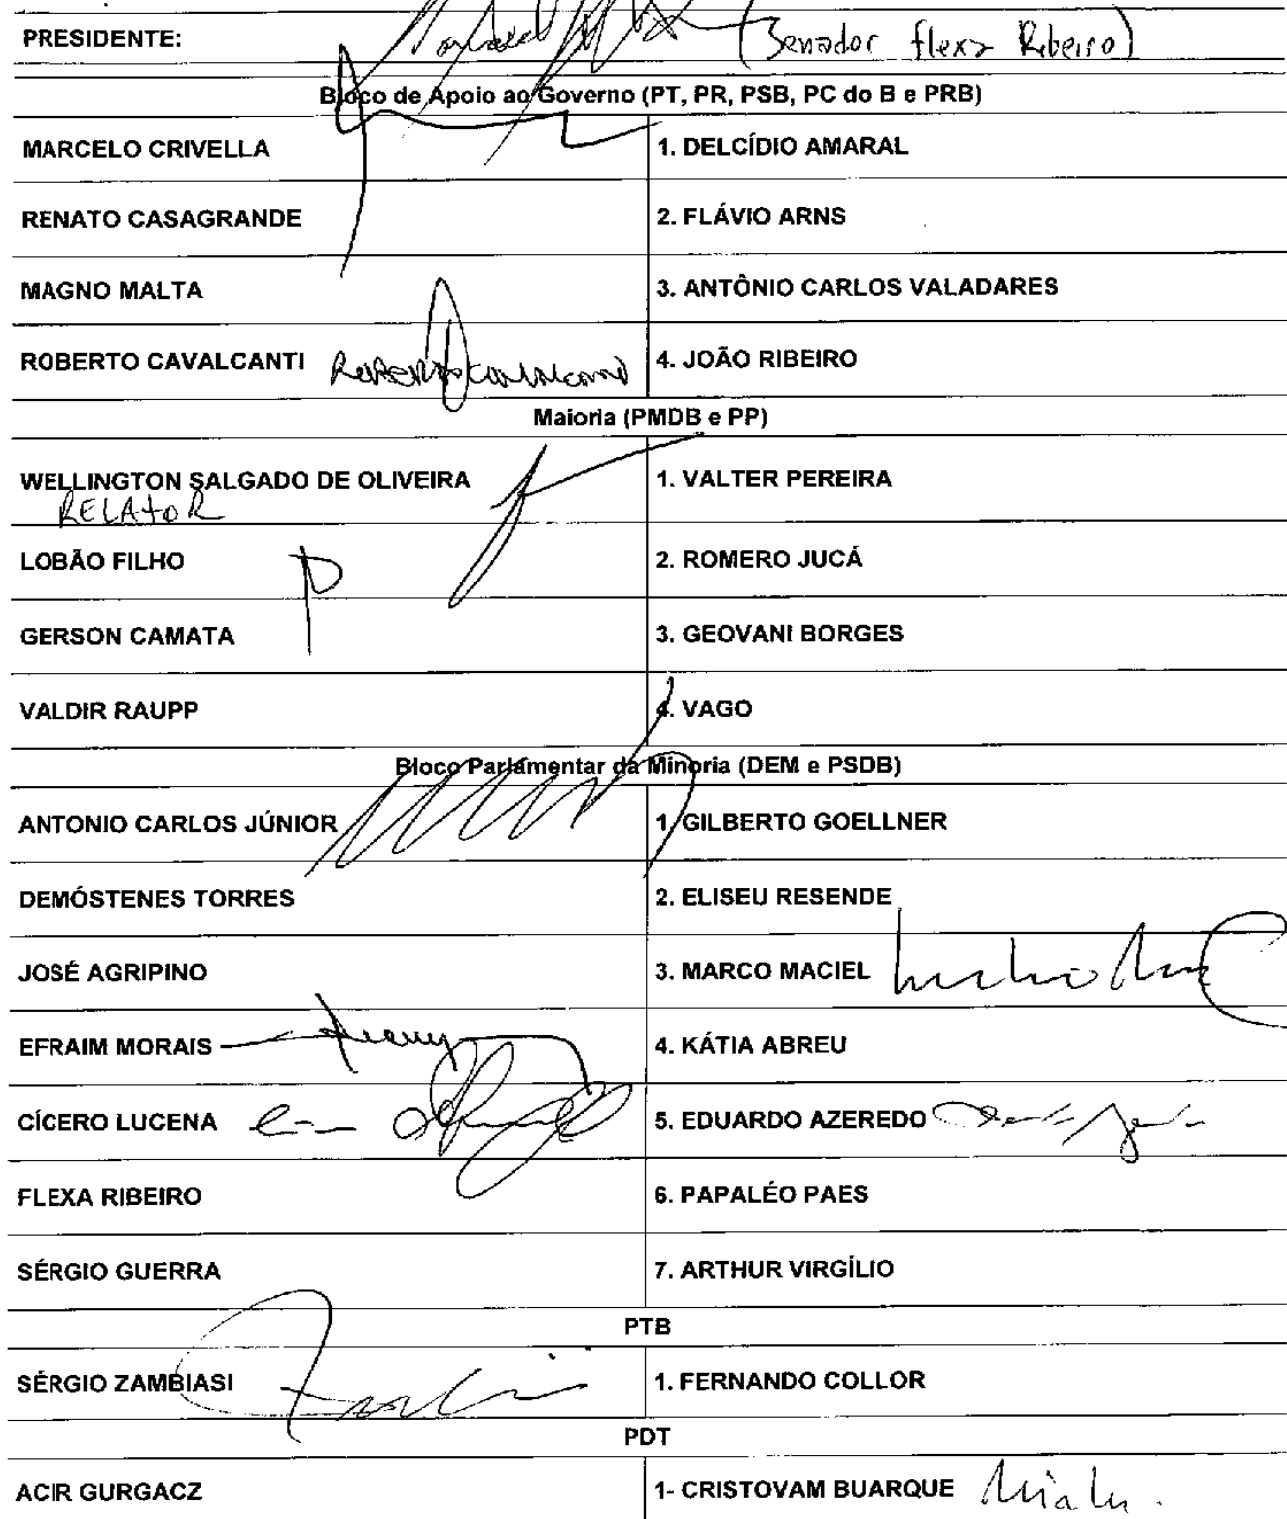 PRESIDENTE: (Senador Flexa Ribeiro)
Bloco de Apoio ao Governo (PT, PR, PSB, PC do B e PRB)
MARCELO CRIVELLA 1. DELCÍDIO AMARAL
RENATO CASAGRANDE 2. FLÁVIO ARNS
MAGNO MALTA 3. ANTÔNIO CARLOS VALADARES
ROBERTO CAVALCANTI Roberto Cavalcanti 4. JOÃO RIBEIRO
Maioria (PMDB e PP)
WELLINGTON SALGADO DE OLIVEIRA 1. VALTER PEREIRA
RELATOR
LOBÃO FILHO 2. ROMERO JUCÁ
GERSON CAMATA 3. GEOVANI BORGES
VALDIR RAUPP 4. VAGO
Bloco Parlamentar da Minoria (DEM e PSDB)
ANTONIO CARLOS JÚNIOR 1. GILBERTO GOELLNER
DEMÓSTENES TORRES 2. ELISEU RESENDE
JOSÉ AGRIPINO 3. MARCO MACIEL
EFRAIM MORAIS 4. KÁTIA ABREU
CÍCERO LUCENA 5. EDUARDO AZEREDO
FLEXA RIBEIRO 6. PAPALÉO PAES
SÉRGIO GUERRA 7. ARTHUR VIRGÍLIO
PTB
SÉRGIO ZAMBIASI 1. FERNANDO COLLOR
PDT
ACIR GURGACZ 1- CRISTOVAM BUARQUE